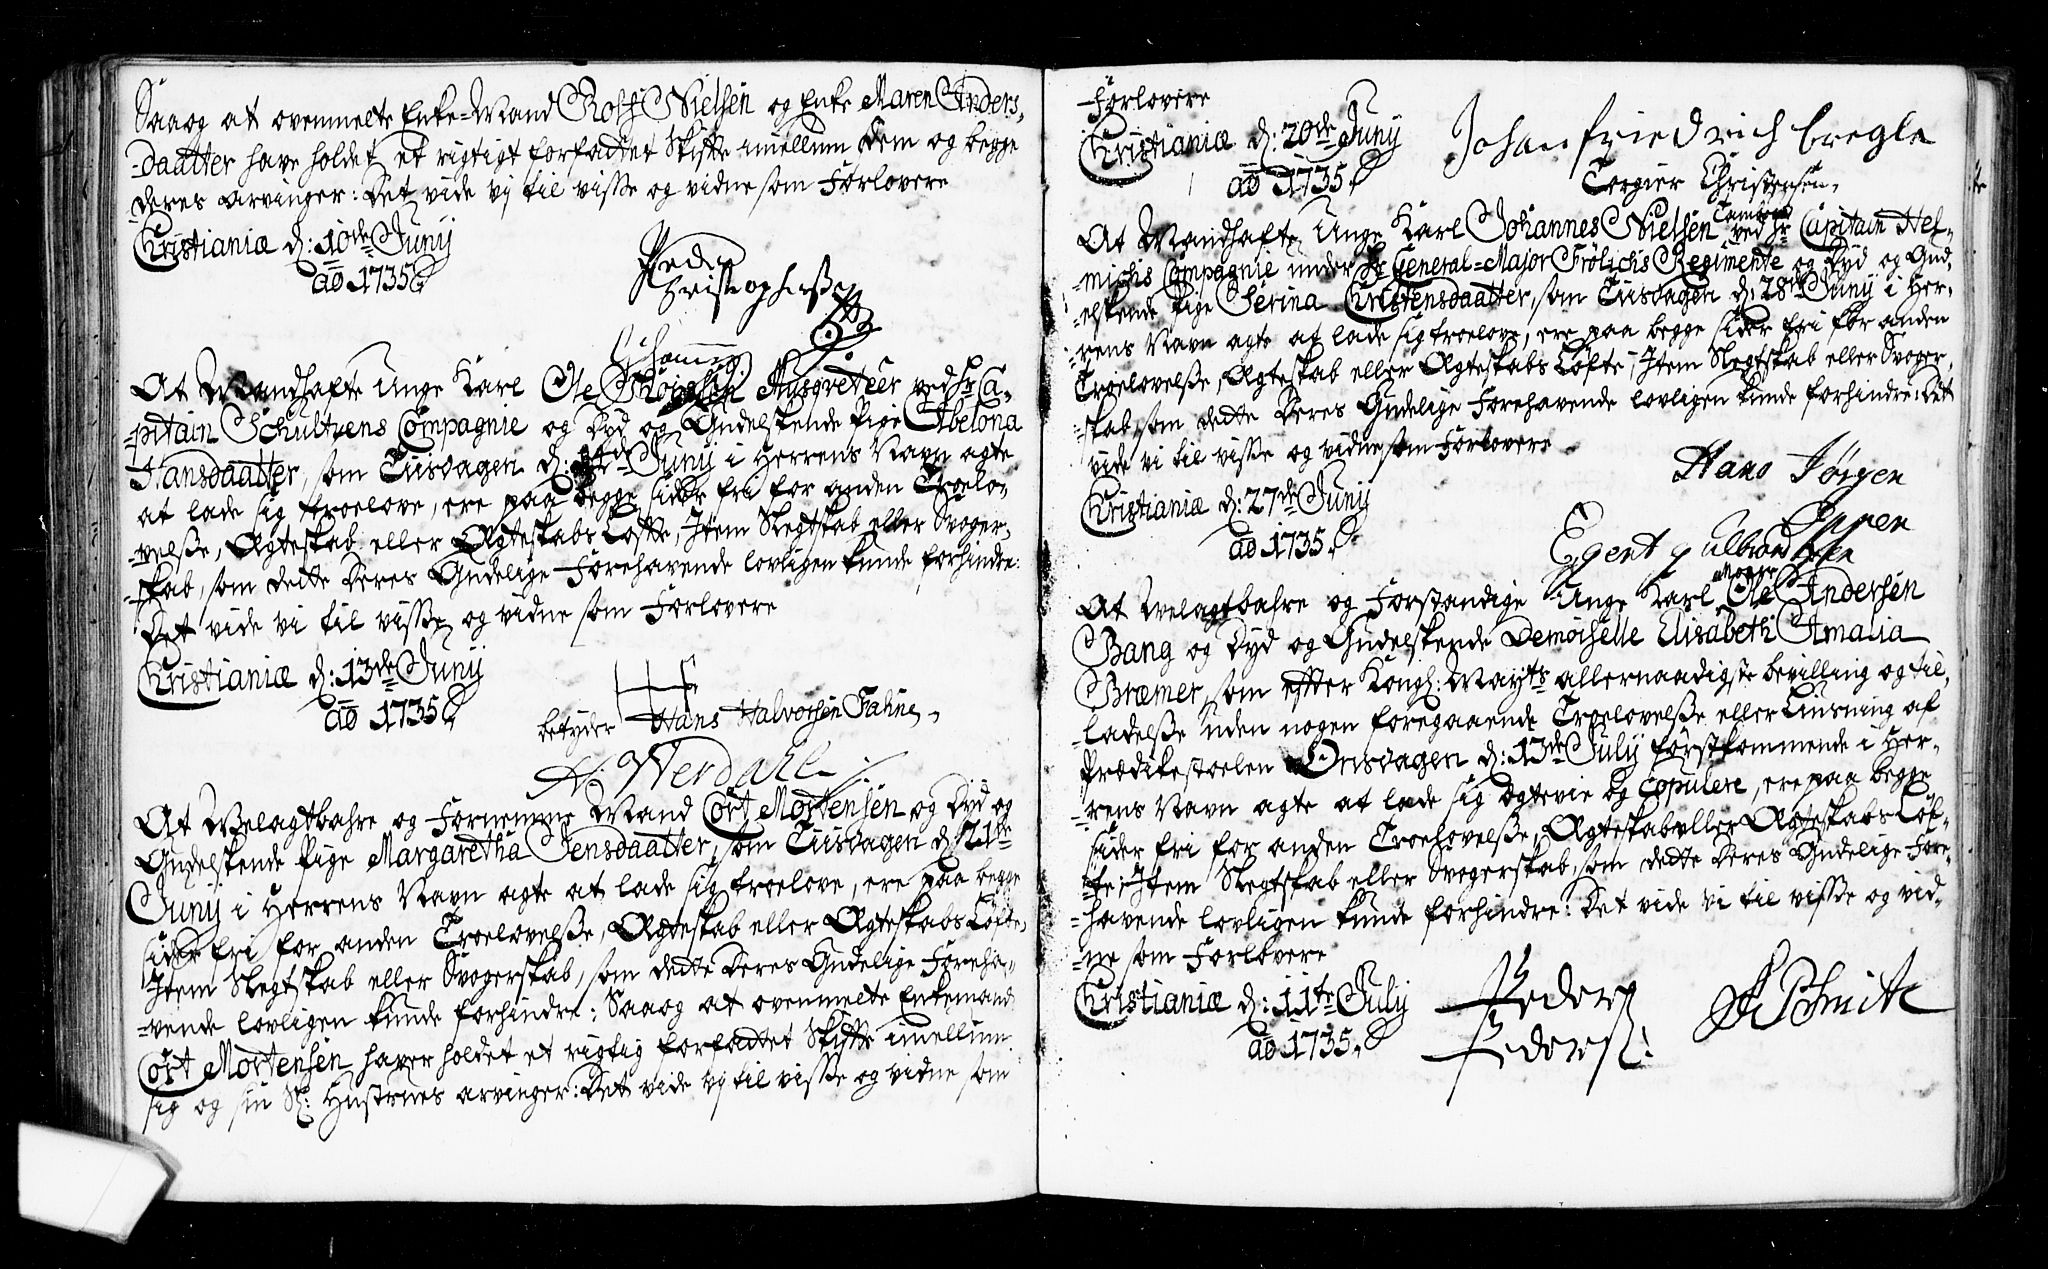 Saaog at ovenmelte Enke-Mand Rolf Nielsen og Enke Maren Anders-
-daatter have holdet et rigtigt forfattet Skifte imellum dem og begge
deres arvinger: Det vide vj til visse og vidne som Forlovere
Christianiæ d: 10de Junij
ao 1735
Peder
Christophersen
At Mandhafte Unge Karl Ole Musqveteer ved Hr Ca-
-pitain Schultzens Compagnie og Dyd og Gudelskende Pige Abelona
Hansdaatter, som Tiisdagen d: Junij i Herrens Navn agte
at lade sig troelove, ere paa begge sider fri for anden Troelo-
-velsse, Ægteskab eller Ægteskabs Løfte, Item Slegtskab eller Svoger-
-skab, som dette deres Gudelige Forehavende lovligen kunde forhindre:
Det vide vi til visse og vidne som Forlovere
Christianiæ d: 13de Junij
ao 1735
betyder Hans Halvorsen Fahne
N: Werdahl
At Welagtbahre og Fornemme Mand Cort Mortensen og Dyd og
Gudelskende Pige Margaretha Jensdaatter, som Tiisdagen d: 21te
Junij i Herrens Navn agte at lade sig troelove, ere paa begge
sider fri for anden Troelovelsse, Ægteskab eller Ægteskabs Løfte,
Item Slegtskab eller Svogerskab, som dette deres Gudelige Foreha-
-vende lovligen kunde forhindre: Saaog at ovenmelte Enkemand
Cort Mortensen haver holdet et rigtig forfattet Skifte imellum
sig og sin Sl: Hustrues arvinger: Det vide vj til visse og vidne som
Forlovere
Christianiæ d: 20de Junij
ao 1735
Johan friedrich bregla
Torgier Christensen
At Mandhafte Unge Karl Johannes Nielsen Tambour ved Hr Capitain Hel-
-michs Compagnie under Hr General-Major Frölichs Regimente og Dyd og Gud-
-elskende Pige Serina Christensdaatter, som Tiisdagen d: 28de Junij i Her-
-rens Navn agte at lade sig troelove, ere paa begge sider fri for anden
Troelovelsse, Ægteskab eller Ægteskabs Løfte, Item Slegtskab eller Svoger-
-skab, som dette deres Gudelige Forehavende lovligen kunde forhindre: Det
vide vi til visse og vidne som Forlovere
Christianiæ d: 27de Junij
ao 1735
Hans Jørgen
Egert gulbrandsen
At Welagtbahre og Forstandige Unge Karl Ole Andersen
Bang og Dyd og Gudelskende Demoiselle Elisabeth Amalia
Bræmer, som efter Kongl: Mayts allernaadigste bevilling og til-
-ladelsse uden nogen foregaaende Troelovelsse eller Liusning af
Prædikestoelen Onsdagen d: 13de July førstkommende i Her-
-rens Navn agte at lade sig Ægtevie og Copulere, ere paa begge
sider fri for anden Troelovelsse, Ægteskab eller Ægteskabs Løf-
-te, Item Slegtskab eller Svogerskab, som dette deres Gudelige Fore-
-havende lovligen kunde forhindre: Det vide vi til visse og vid-
-ne som Forlovere
Christianiæ d: 11te July
ao 1735
Peder
Peders: